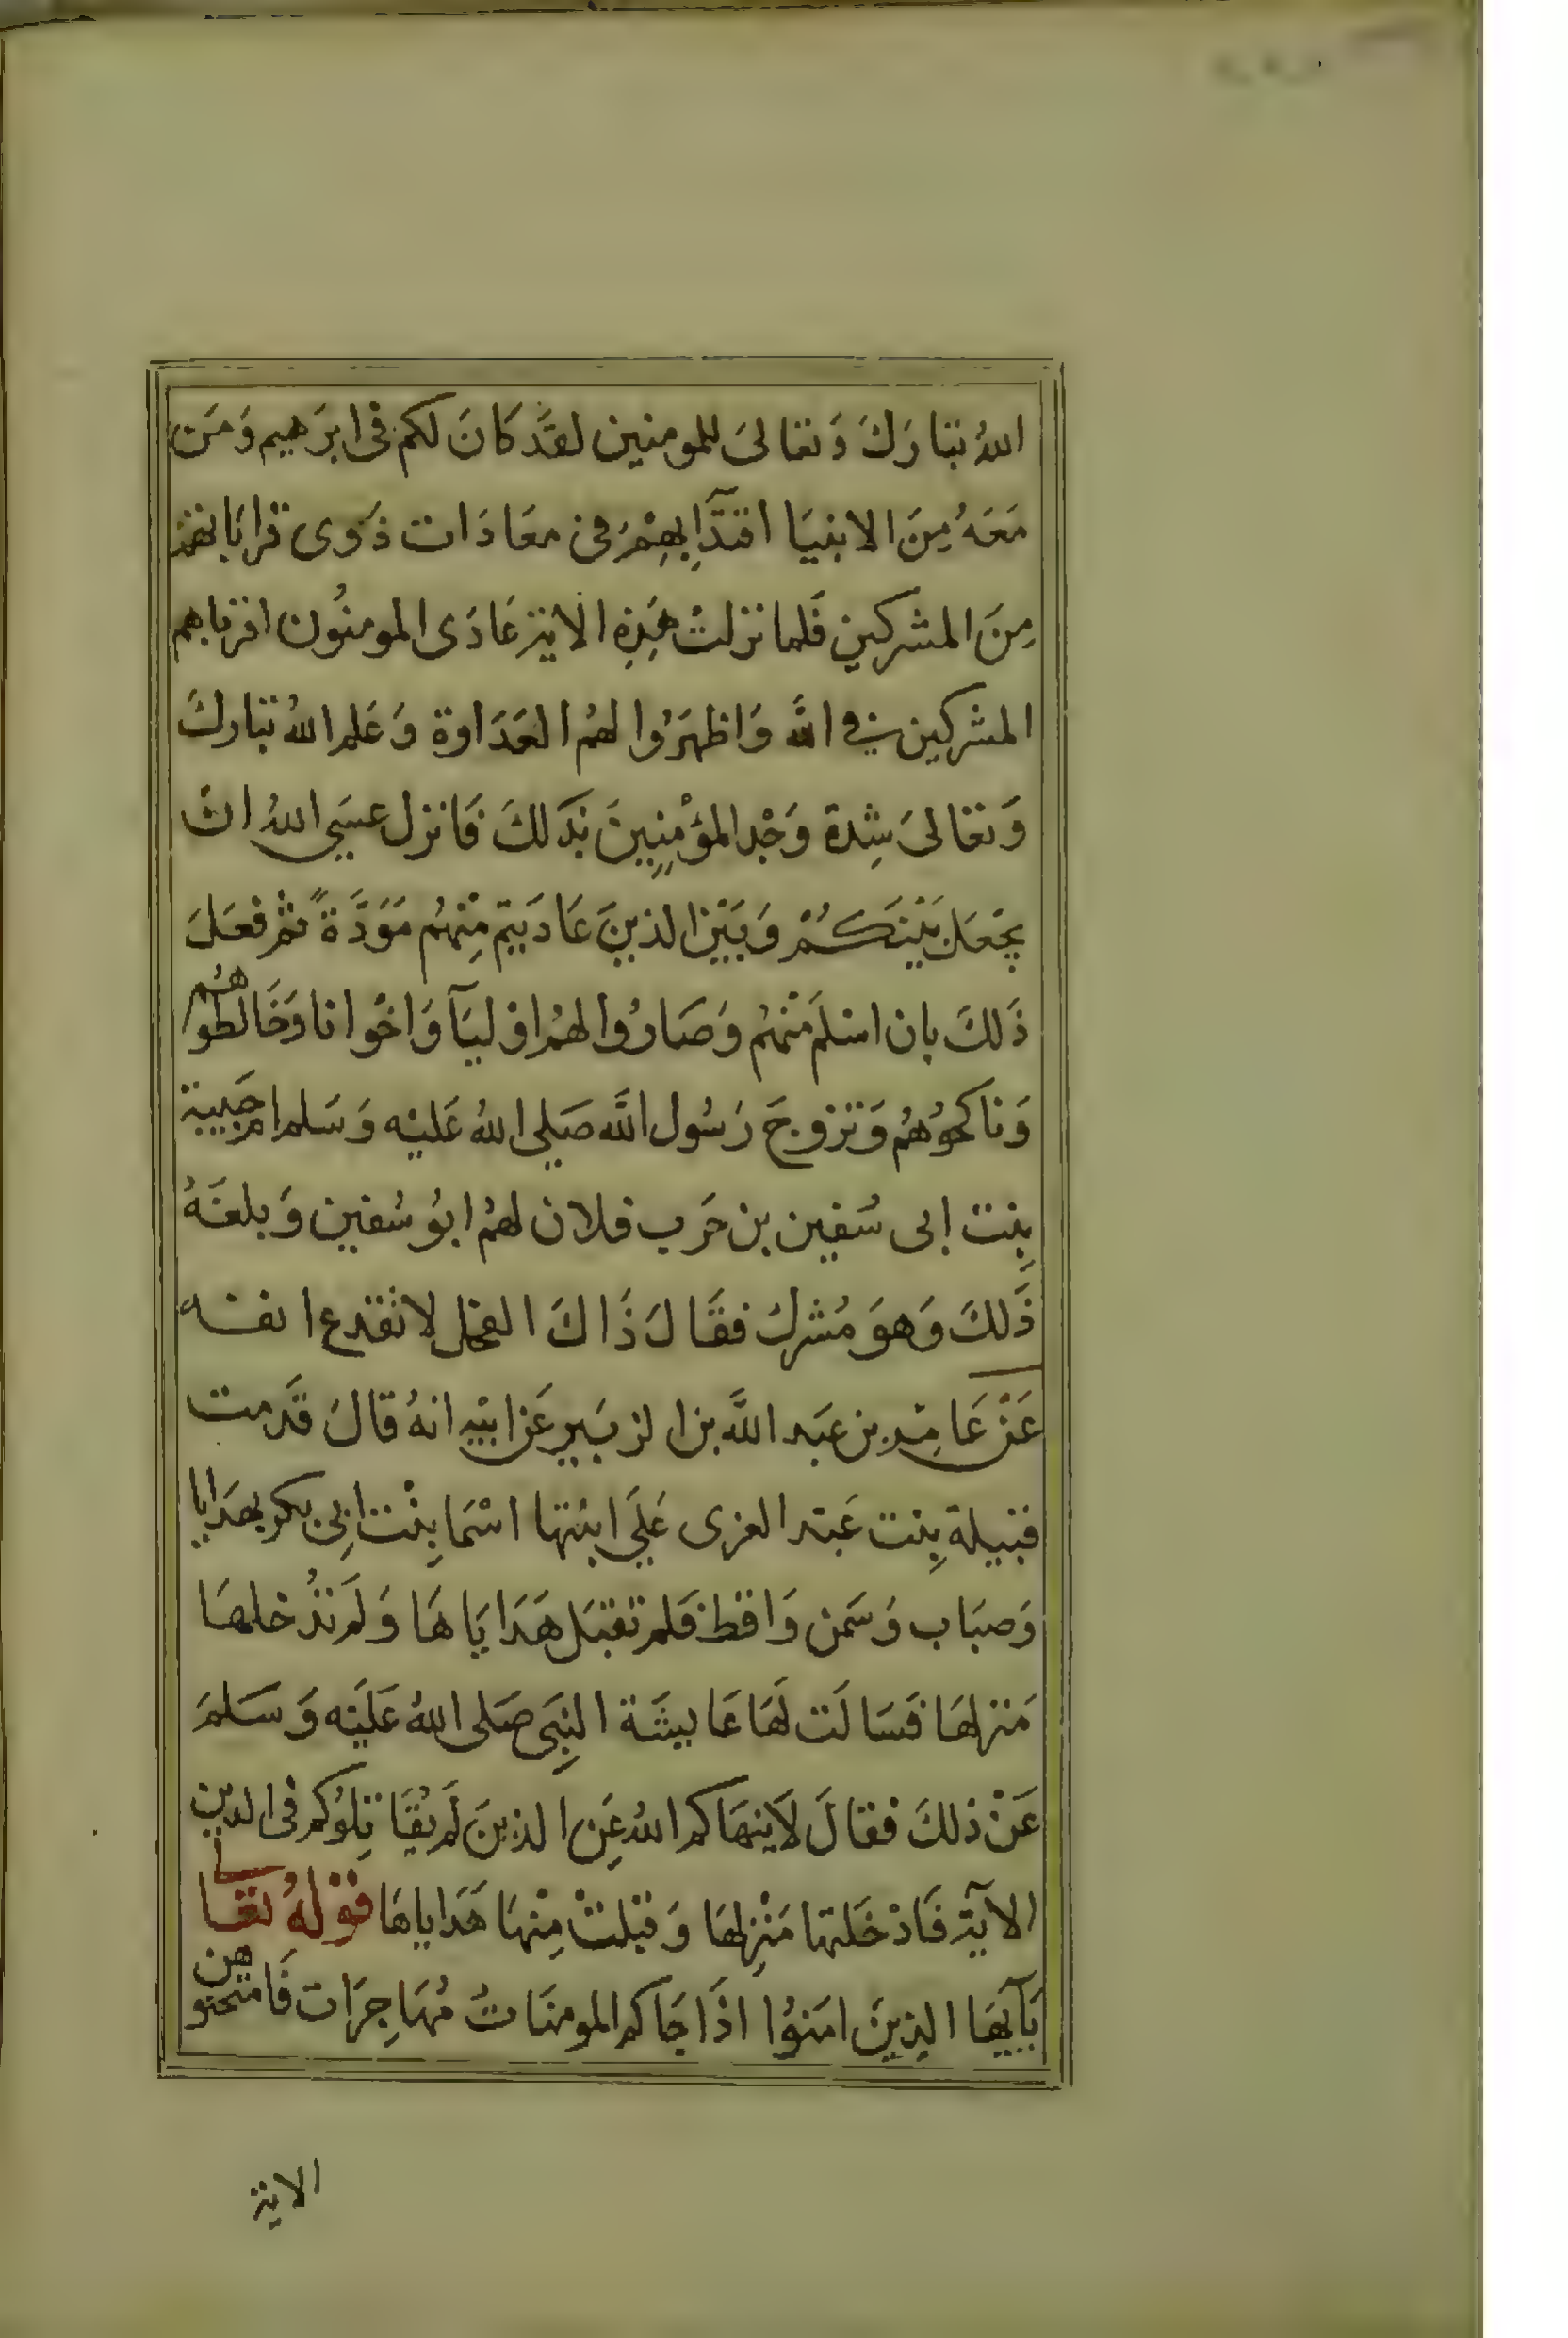 اللهُ تبارَكَ وَتعالىَ للمومنين لقَد كَانَ لكم فى ابرَهيم وَمَن
مَعَهُ مِنَ الانبيَا اقتدَآ بِهِمْ فى معَادَات ذَوى قرابَاتهم
مِنَ المشركين فَلما نزلتْ هَذِهِ الاية عَادَى المومنُون اقرباهم
المشركين في الله وَاظهَرُوا لهمُ العَدَاوة وَعَلم اللهُ تبارك
وَتعَالىَ شِدة وَجْد المؤْمِنِينَ بذَلكَ فَانزل عسَى اللهُ انْ
يجْعَلَ بَيْنَكُمْ وَبَيْنَ الذينَ عَادَيتم مِنْهُم مَوَدَّةً ثم فعَلَ
ذَلكَ بان اسْلَم مْنهُم وَصَارُوا لهمُ اوْليَآ وَاخْوانا وَخَالطوهُم
وَناكحُوهُم وَتزوجَ رَسُول الله صَلى اللهُ عَليْه وَسَلم ام حَبيبة
بِنت ابى سُفين بن حَرب فلان لهمُ ابوُ سُفين وَبلغَهُ
ذَلكَ وَهوَ مُشرك فقَالَ ذَاكَ الفحل لا يقدع انفه
عَنْ عَامِر بن عَبد اللَّه بن الزبَير عَن ابيْهِ انهُ قالَ قَدمت
قتيلة بِنت عَبد العزى عَلَي ابنتها اسْمَا بِنْت ابِى بكر بهَدَايا
وَضبَاب وَسَمن وَاقط فَلم تقبَل هَدَايَاهَا وَلَم تدُخلهَا
مَنزلهَا فَسَالَت لَهَا عَايشَة النبِىَ صَلى اللهُ عَلَيْه وَسَلمَ
عَنْ ذلكَ فقالَ لاَينهَاكم اللهُ عَنِ الذينَ لَم يُقَاتِلوُكم فى الدين
الآية فَادْخَلتها مَنْزِلهَا وَقبلتْ مِنْهَا هَدَاياهَا قوْلهُ تعَالى
يَآيهَا الذِينَ امَنوُا اذَا جَاكم المومنَاتُ مُهَاجِرَات فَامتحنوهن
الاية